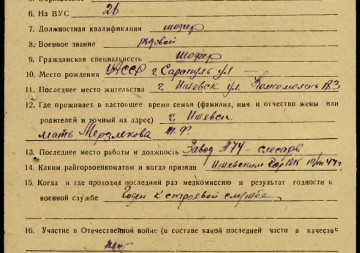 6. На ВУС 26
7. Должностная квалификация шофер
8. Военное звание рядовой
9. Гражданская специальность шофер
10. Место рождения УАССР г. Сарапуль ул
11. Последнее место жительства г. Ижевск ул. Комсомольск
12. Где проживает в настоящее время семья (фамилия, имя и отчество жены или
родителей и точный их адрес) г. Ижевск
мать Мерзлякова
13. Последнее место работы и должность Завод №74 слесарь
14. Каким райгорвоенкоматом и когда призван Ижевским ГорВК
15. Когда и где проходил последний раз медкомиссию и результат годности к
военной службе Годен к строевой службе
16. Участие в Отечественной войне (в составе какой последней части и в качестве